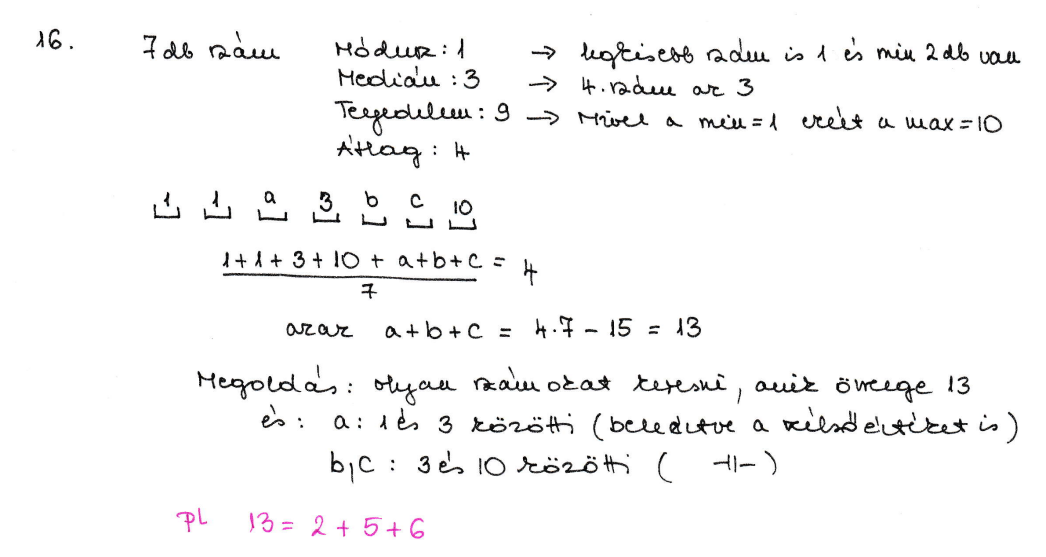 16. 7 db szám Módusz: 1 → legkisebb szám is 1 és min 2 db van
Medián: 3 → 4. szám az 3
Terjedelem: 9 → Mivel a min=1 ezért a max=10
Átlag: 4
1 1 a 3 b c 10
1+1+3+10+a+b+c / 7 = 4
azaz a+b+c = 4·7-15 = 13
Megoldás: olyan számokat keresni, amik összege 13
és: a: 1 és 3 közötti (beleértve a szélsőértéket is)
b,c: 3 és 10 közötti ( -||- )
PL 13 = 2+5+6